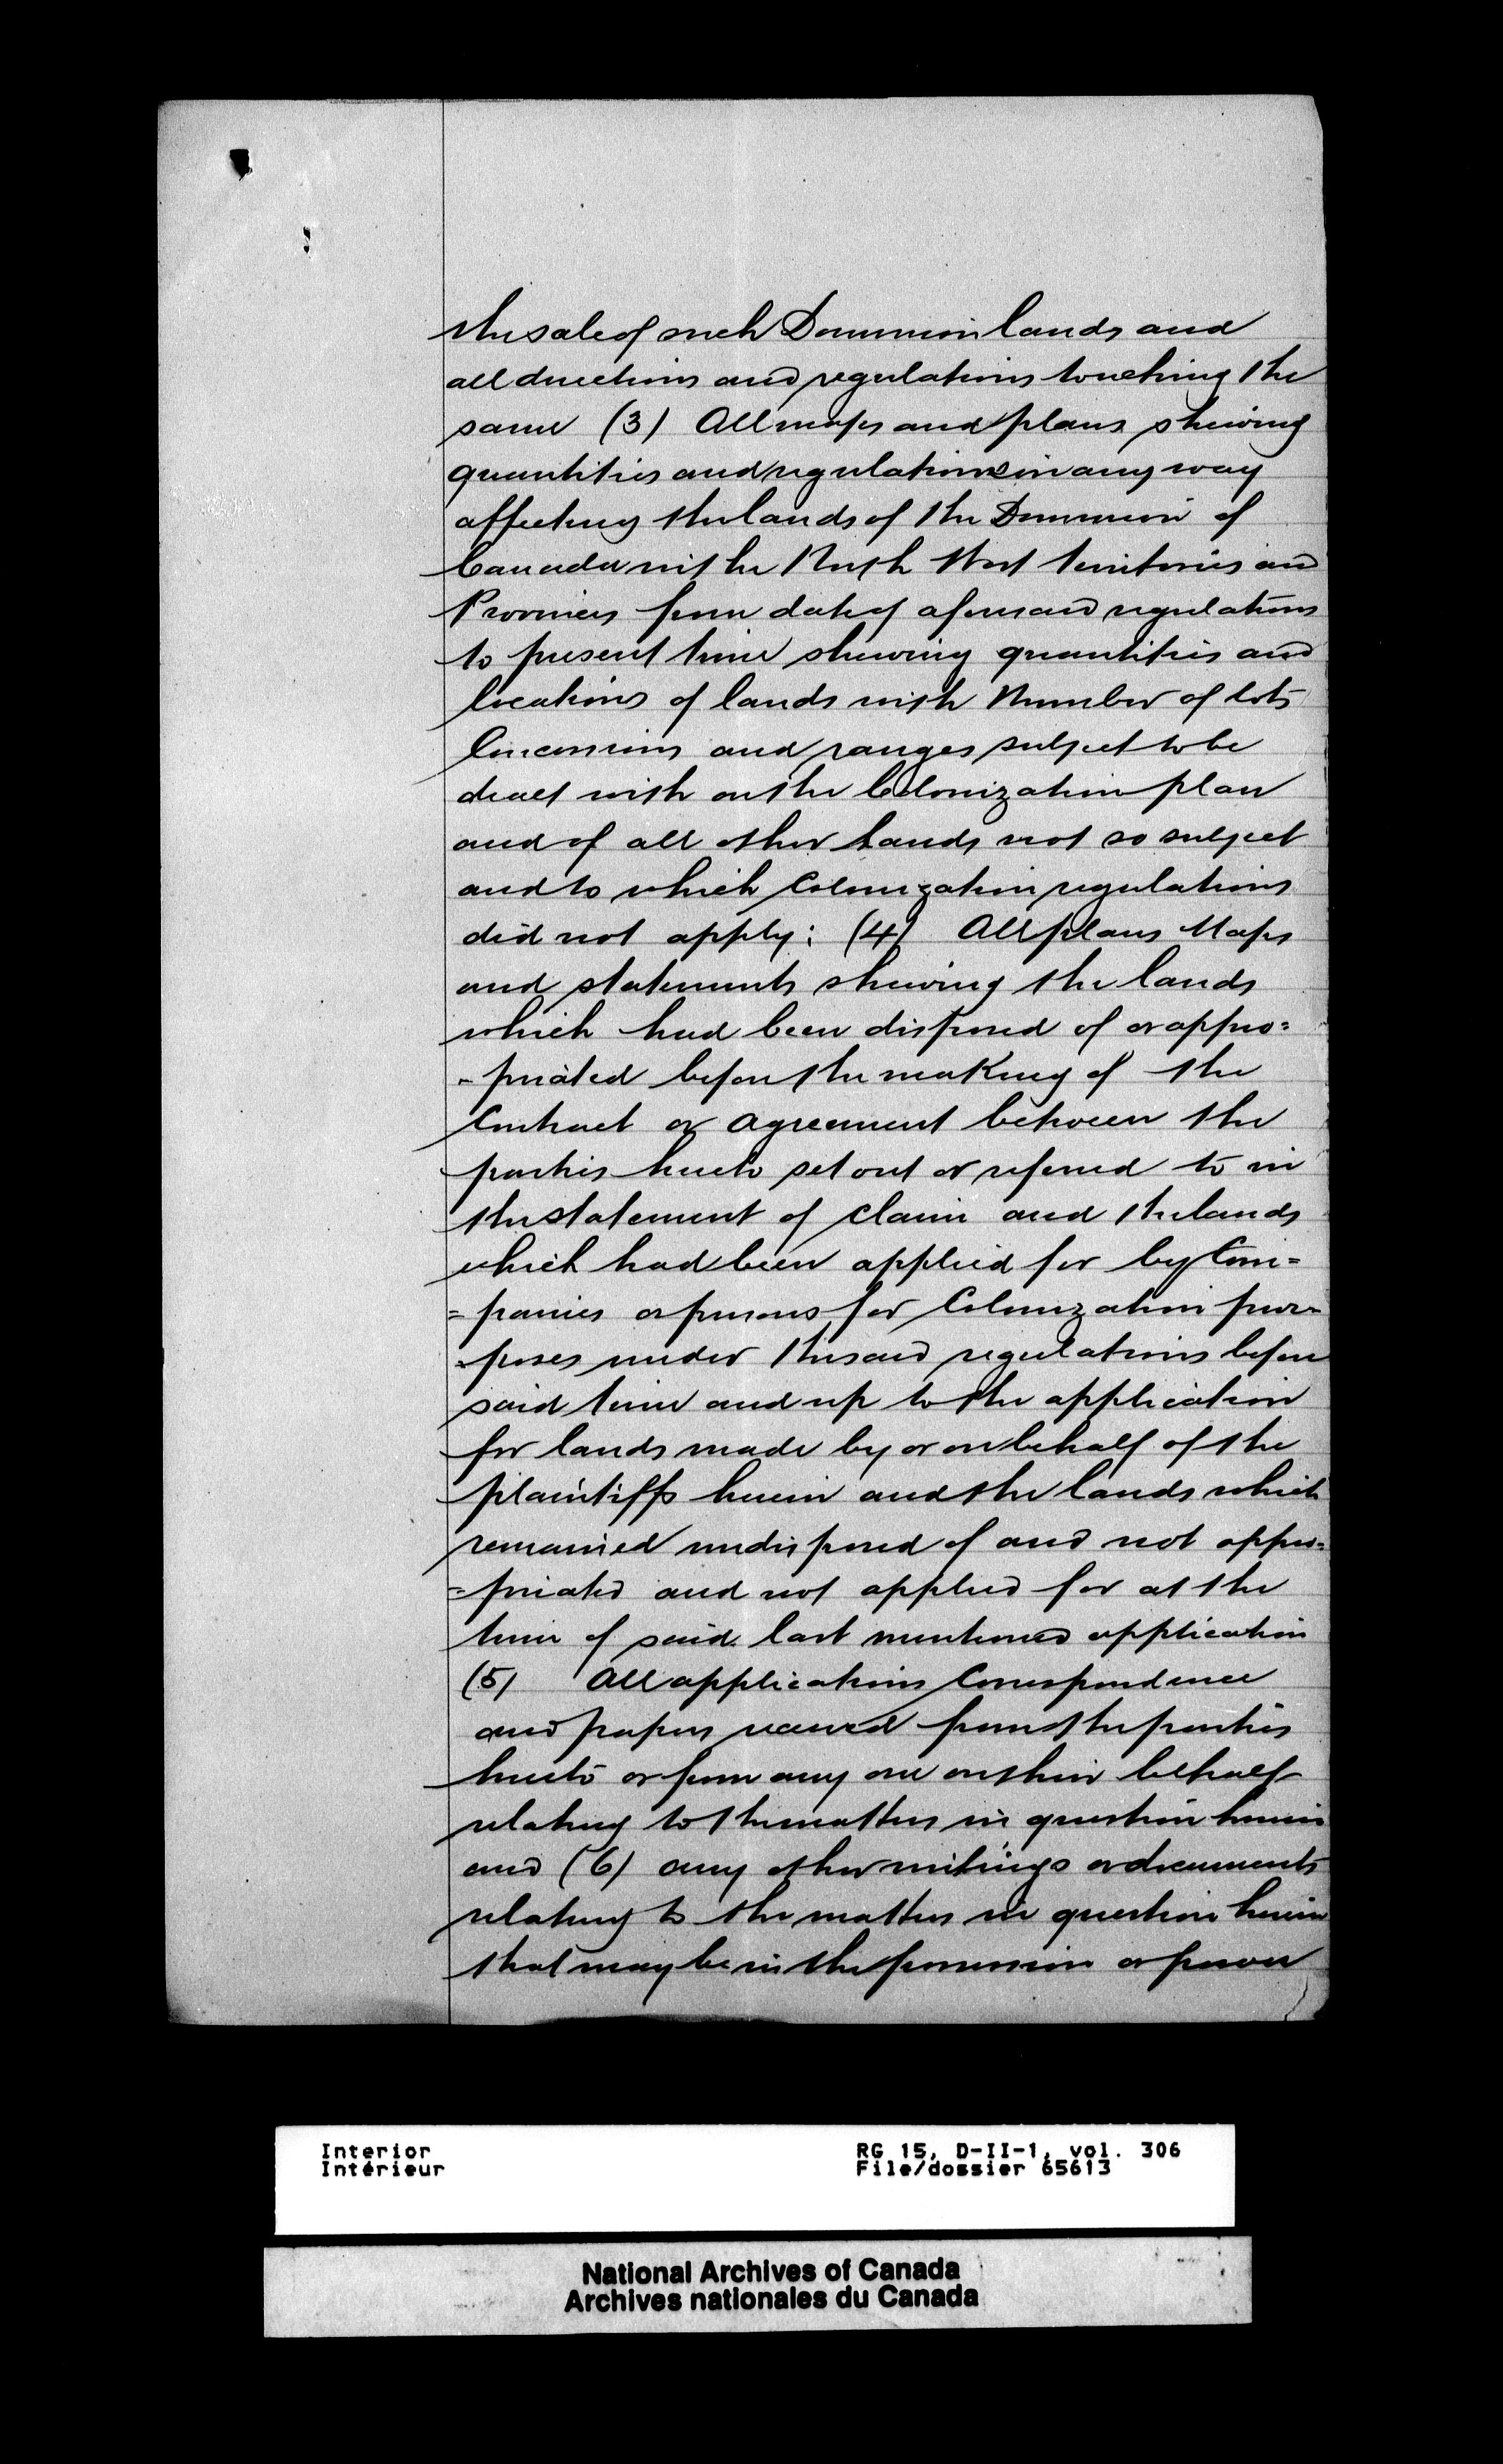 the sale of such Dominion lands and
all directions and regulations touching the
same (3) All maps and plans shewing
quantities and regulations in any way
affecting the lands of the Dominion of
Canada in the North West Territories and
Provinces from date of aforesaid regulations
to present time shewing quantities and
locations of lands with Number of lots
Concessions and ranges subject to be
dealt with on the Colonization plan
and of all other lands not so subject
and to which Colonization regulations
did not apply; (4) All plans Maps
and statements shewing the lands
which had been disposed of or appro=
-priated before the making of the
Contract or agreement between the
parties hereto set out or referred to in
the statement of claim and the lands
which had been applied for by Com=
=panies or persons for Colonization pur-
-poses under the said regulations before
said time and up to the application
for lands made by or on behalf of the
plaintiffs herein and the lands which
remained undisposed of and not appro=
=priated and not applied for at the
time of said last mentioned application
(5) All applications Correspondence
and papers received from the parties
hereto or from any one on their behalf
relating to the matters in question herein
and (6) any other writings or documents
relating to the matters in question herein
that may be in the possession or power
Interior RG 15, D-II-1, vol. 306
Intérieur File/dossier 65613
National Archives of Canada
Archives nationales du Canada